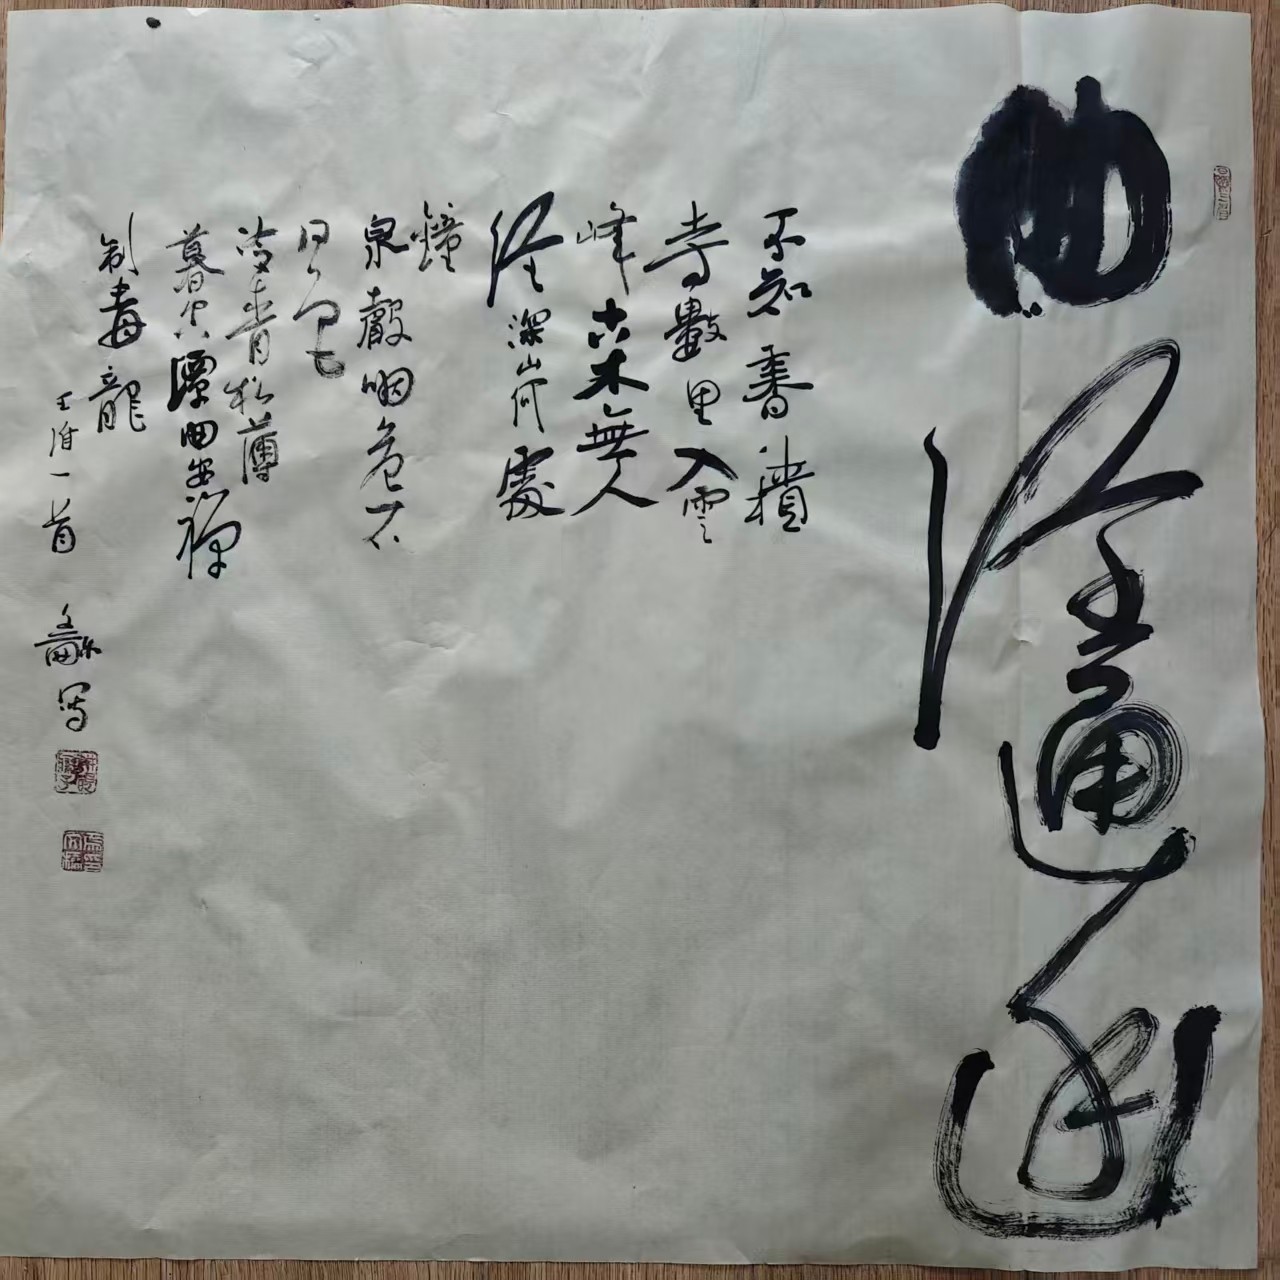 曲徑通幽
不知香積
寺數里入雲
峰古木無人
徑深山何處
鐘
泉聲咽危石
日色
冷青松薄
暮空潭曲安禪
制毒龍
王維一首 龢寫